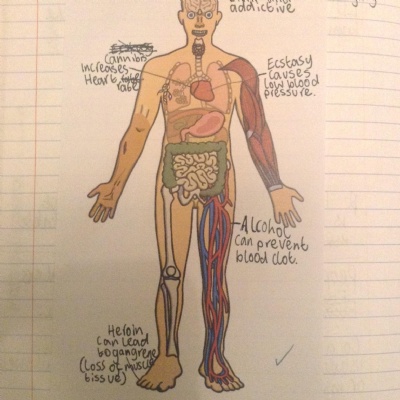 addictive
Cannibs
increases
Heart
rate
Ecstasy
Causes
low blood
pressure.
Alcohol
Can prevent
blood clot.
Heroin
can Lead
to gangrene
(Loss of muscle
tissue)